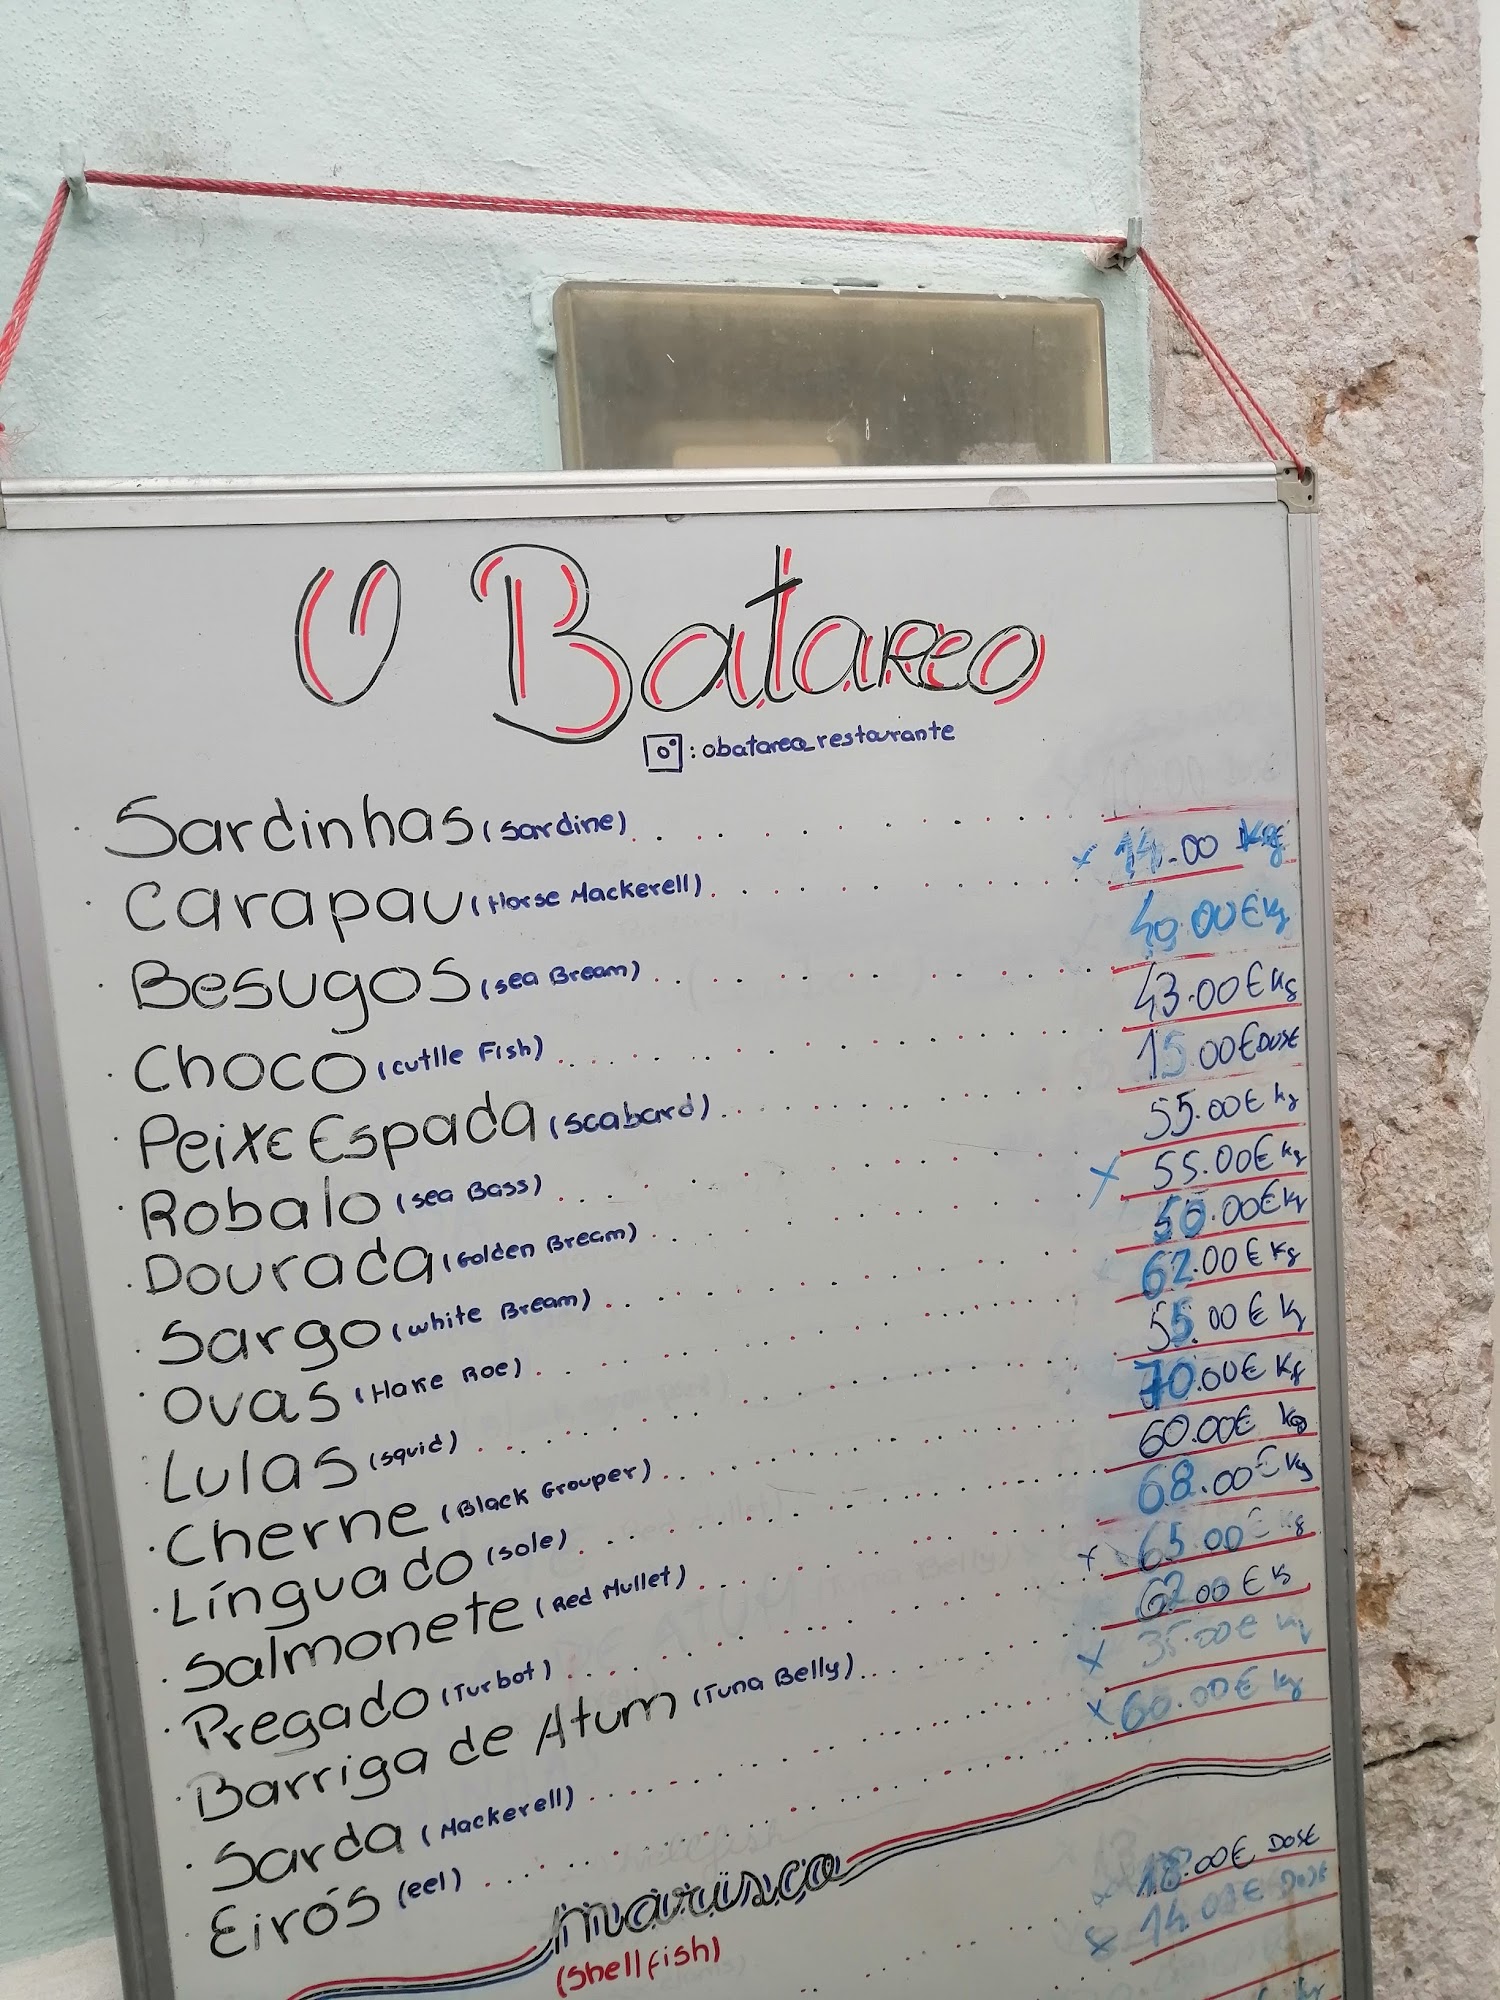 O Batareo
: obatareo_restaurante
Sardinhas (Sardine)
Carapau (Horse Mackerell) x 14.00
Besugos (sea Bream) 40.00€ Kg
Choco (cutlle Fish) 43.00€ Kg
Peixe Espada (scabard) 15.00€ DOSE
Robalo (sea Bass) 55.00€ kg
Dourada (Golden Bream) x 55.00€ kg
Sargo (white Bream) 50.00€ Kg
Ovas (Hake Roe) 62.00€ Kg
Lulas (squid) 55.00€ Kg
Cherne (Black Grouper) 70.00€ Kg
Línguado (sole) 60.00€ Kg
Salmonete (Red Mullet) 68.00€ Kg
Pregado (Turbot) x 65.00€ Kg
Barriga de Atum (Tuna Belly) 62.00€ K
Sarda (Mackerell) x 35.00€ Kg
Eirós (eel) x 60.00€ Kg
marisco
(shellfish)
18.00€ DOSE
x 14.00€ DOSE